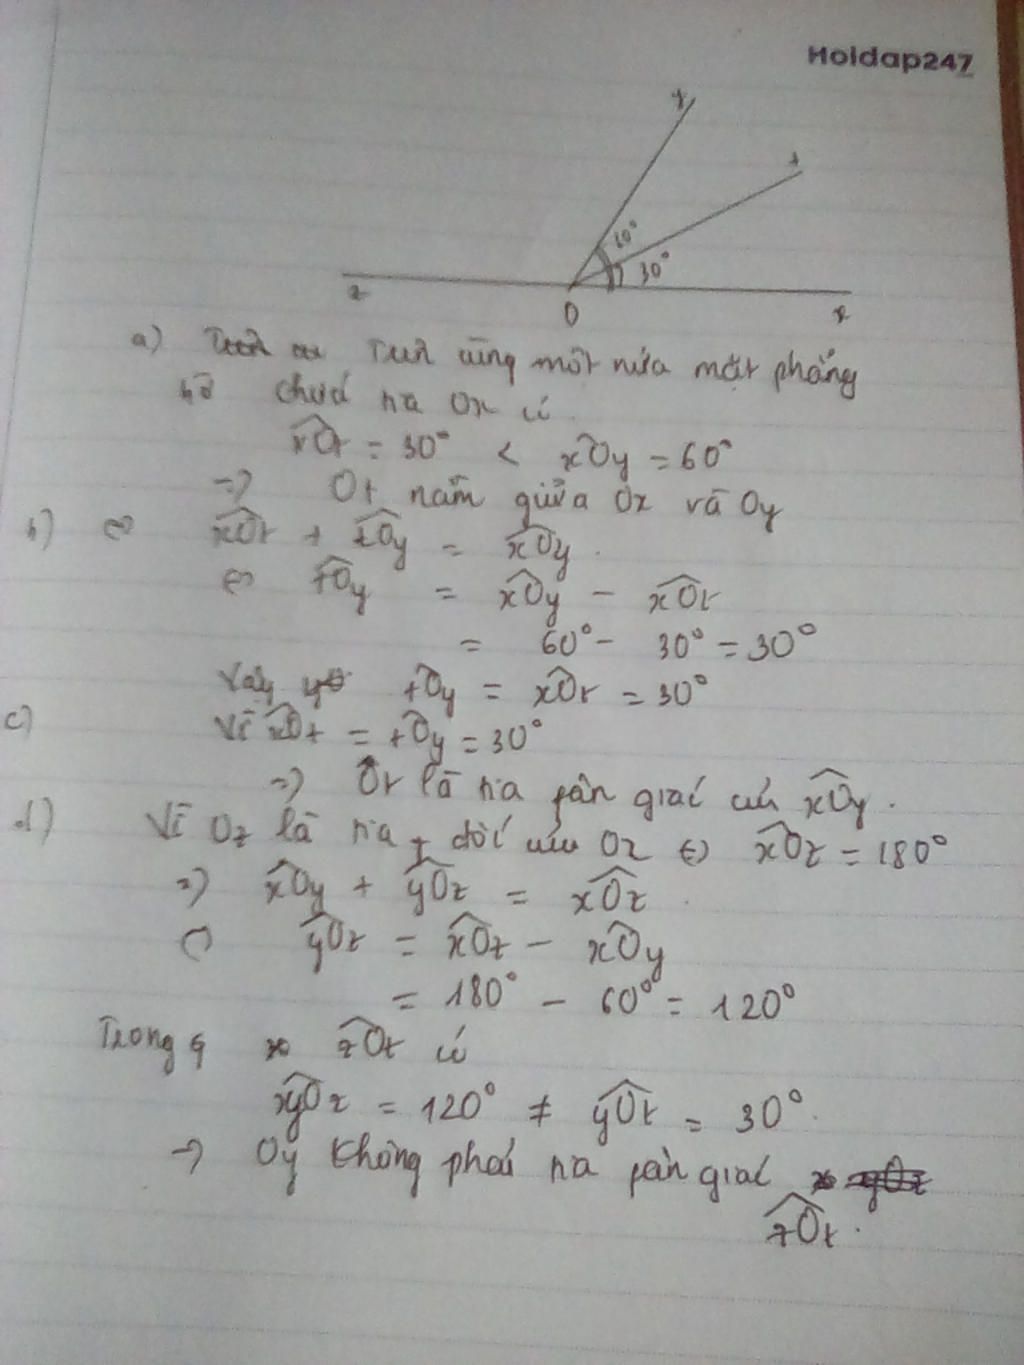 Holdap247
y
t
60°
30°
z
O
x
a) Trên cùng một nửa mặt phẳng
bờ chứa tia Ox có
xOt = 30° < xOy = 60°
=> Ot nằm giữa Ox và Oy
b) <=> xOt + tOy = xOy.
<=> tOy = xOy - xOt
= 60° - 30° = 30°
Vậy tOy = xOt = 30°
c) Vì xOt = tOy = 30°
=> Ot là tia phân giác của xOy.
d) Vì Oz là tia đối của Oz <=> xOz = 180°
=> xOy + yOz = xOz.
yOz = xOz - xOy
= 180° - 60° = 120°
Trong zOt có
yOz = 120° ≠ yOt = 30°.
-> Oy không phải tia phân giác
zOt.